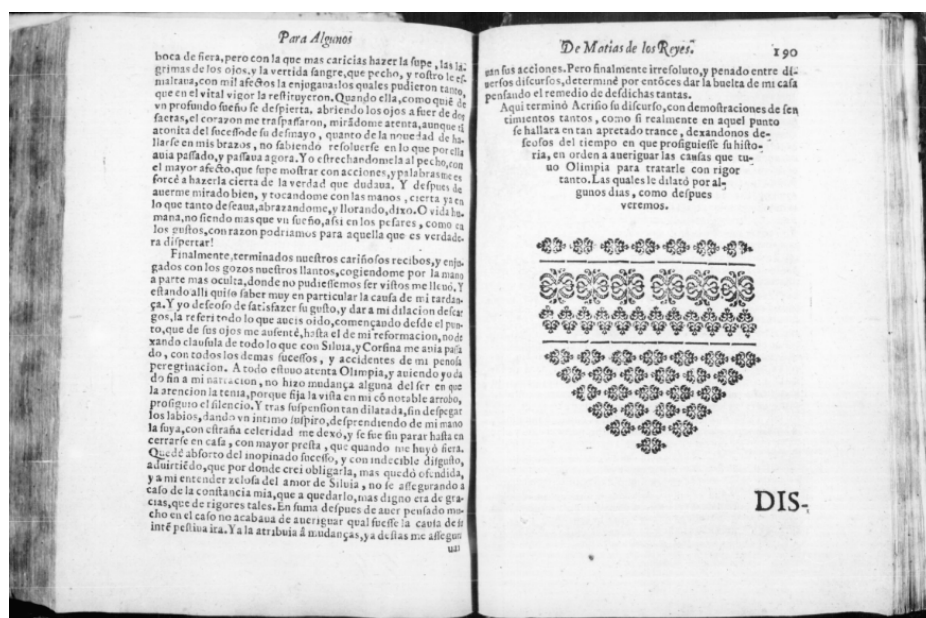 Para Algunos
boca de fiera, pero con la que mas caricias hazer la supe, las la-
grimas de los ojos, y la vertida sangre, que pecho, y rostro le es-
maltaua, con mil afectos la enjogaua: los quales pudieron tanto,
que en el vital vigor la restituyeron. Quando ella, como quiē de
vn profundo sueño se despierta, abriendo los ojos a fuer de dos
saetas, el corazon me traspassaron, mirādome atenta, aunque si
atonita del sucesso de su desmayo, quanto de la nouedad de ha-
llarse en mis brazos, no sabiendo resoluerse en lo que por ella
auia passado, y passaua agora. Yo estrechandomela al pecho, con
el mayor afecto, que supe mostrar con acciones, y palabras me es
forcè a hazerla cierta de la verdad que dudaua. Y despues de
auerme mirado bien, y tocandome con las manos, cierta ya en
lo que tanto deseaua, abrazandome, y llorando, dixo. O vida hu-
mana, no siendo mas que vn sueño, assi en los pesares, como en
los gustos, con razon podriamos para aquella que es verdade-
ra dispertar!
Finalmente, terminados nuestros cariñosos recibos, y enju-
gados con los gozos nuestros llantos, cogiendome por la mano
a parte mas oculta, donde no pudiessemos ser vistos me lleuò. Y
estando alli quiso saber muy en particular la causa de mi tardan-
ça. Y yo deseoso de satisfazer su gusto, y dar a mi dilacion descar
gos, la referi todo lo que aueis oido, començando desde el pun-
to, que de sus ojos me ausentè, hasta el de mi reformacion, no de
xando clausula de todo lo que con Siluia, y Corsina me auia passa
do, con todos los demas sucessos, y accidentes de mi penosa
peregrinacion. A todo estuuo atenta Olimpia, y auiendo yo da
do fin a mi narracion, no hizo mudança alguna del ser en que
la atencion la tenia, porque fija la vista en mi cō notable arrobo,
prosiguio el silencio. Y tras suspension tan dilatada, sin despegar
los labios, dando vn intimo suspiro, desprendiendo de mi mano
la suya, con estraña celeridad me dexò, y se fue sin parar hasta en
cerrarse en casa, con mayor presta, que quando me huyò fiera.
Quedè absorto del inopinado sucesso, y con indecible disgusto,
aduirtiēdo, que por donde crei obligarla, mas quedò ofendida,
y a mi entender zelosa del amor de Siluia, no se assegurando a
caso de la constancia mia, que a quedarlo, mas digno era de gra-
cias, que de rigores tales. En suma despues de auer pensado mu-
cho en el caso no acabaua de aueriguar qual fuesse la causa de su
intēpestiua ira. Ya la atribuia â mudanças, ya destas me assegu
uan
De Matias de los Reyes.
190
uan sus acciones. Pero finalmente irresoluto, y penado entre di-
uersos discursos, determinè por entōces dar la buelta de mi casa
pensando el remedio de desdichas tantas.
Aqui terminò Acrisio su discurso, con demostraciones de sen
timientos tantos, como si realmente en aquel punto
se hallara en tan apretado trance, dexandonos de-
seosos del tiempo en que prosiguiesse su histo-
ria, en orden a aueriguar las causas que tu-
uo Olimpia para tratarle con rigor
tanto. Las quales le dilatò por al-
gunos dias, como despues
veremos.
DIS-